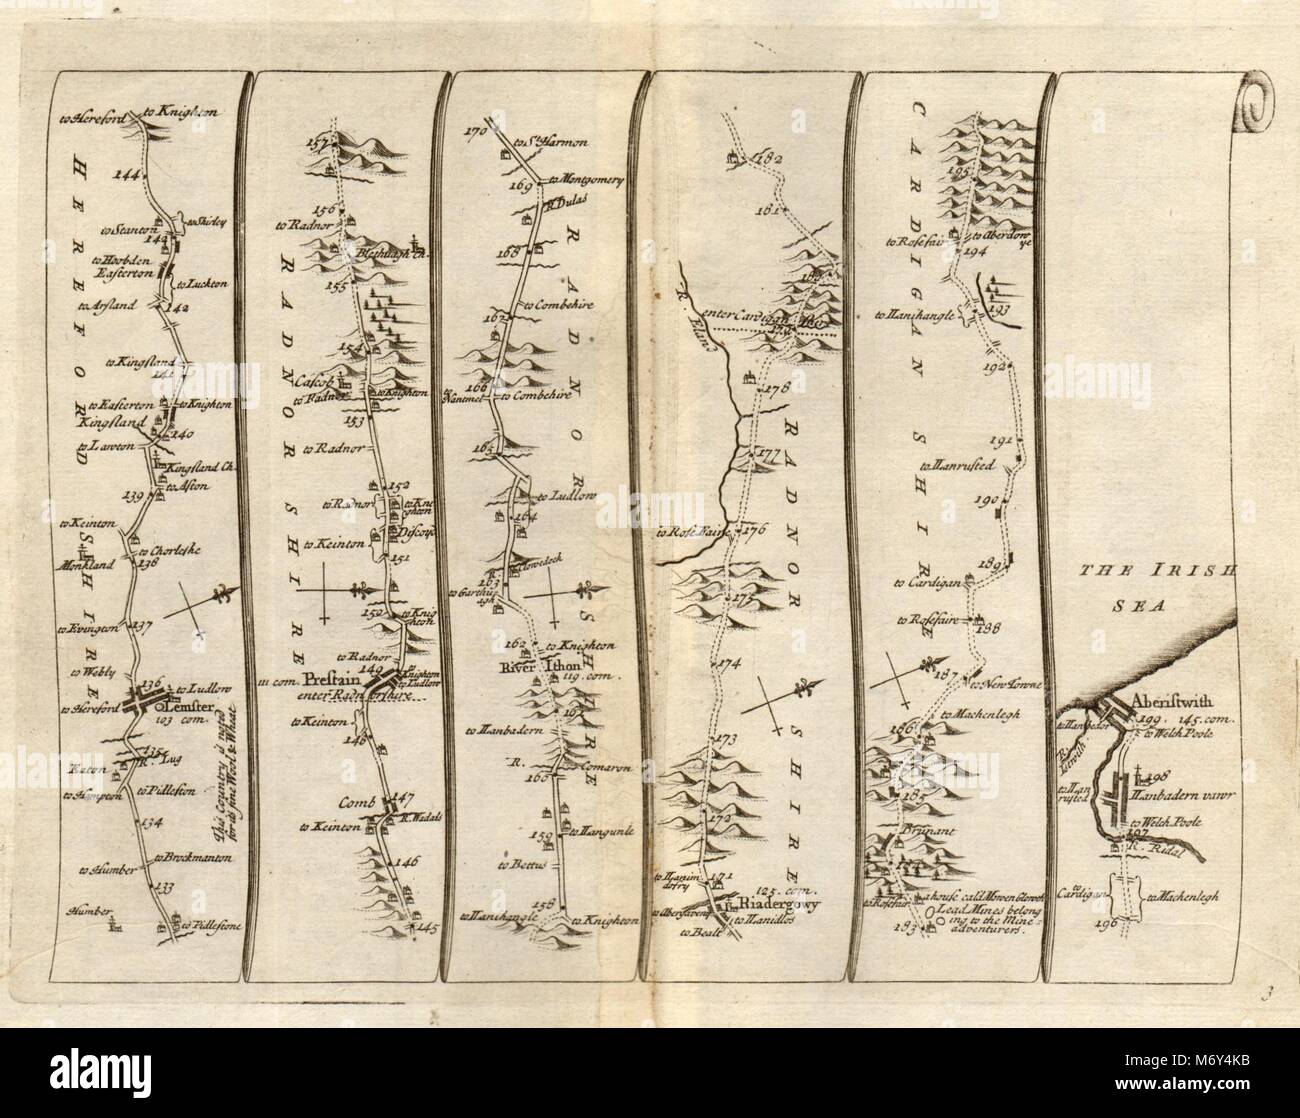 to Hereford
to Knighton
144
to Stanton
to Shirley
143
to Hoobden
Easterton
to Luckton
to Arsland
142
to Kingsland
141
to Easterton
to Knighton
Kingsland
140
to Lawton
Kingsland Ch.
to Aston
139
to Keinton
to Chorleske
Monkland
138
137
to Evington
to Webly
136
to Ludlow
to Hereford
Lemster
103 com.
135
R. Lug
Eaton
to Hampton
to Pidleston
134
to Brockmanton
to Humber
133
Humber
to Pidlestone
This Country is noted
for its fine Wool & Wheat
HEREFORD SHIRE
157
156
to Radnor
Blethuagh Ch.
155
154
Cascob
to Radnor
to Knighton
153
to Radnor
152
to Radnor
to Knighton
Discoyd
to Keinton
151
150
to Knighton
to Radnor
149
to Knighton
to Ludlow
111 com.
Prestain
enter Radnorshire
to Keinton
148
Comb
147
R. Wadals
to Keinton
146
145
RADNOR SHIRE
170
to St. Harmon
to Montgomery
169
R. Dulas
168
to Combehire
167
166
R. Nantmel
to Combehire
165
to Ludlow
164
Clowedock
163
to Garthuagh
162
to Knighton
River Ithon
119. com.
161
to Llanbadern
R. Comaron
160
159
to Llangunle
to Bettus
158
to Llanihangle
to Knighton
RADNOR SHIRE
182
181
180
R. Eland
enter Cardigan Shire
179
178
177
to Rose Faire
176
175
174
173
172
171
to Llanimdofry
125. com.
Riadergowy
to Abergaveny
to Llanidlos
to Bealt
RADNOR SHIRE
195
to Rosefair
to Aberdowye
194
193
to Llanihangle
192
191
to Llanrusted
190
189
to Cardigan
to Rosefaire
188
187
to New Towne
to Machenlegh
186
185
Brunant
184
to Rosefair
a house cald Mowen Glowoth
Lead Mines belong
ing to the Mine-
adventurers.
183
CARDIGAN SHIRE
THE IRISH
SEA
Aberistwith
199. 145. com.
to Llangedor
to Welch Poole
R. Istwith
198
to Llanrusted
Llanbadern vawr
to Welch Poole
197
R. Ridal
to Cardigan
to Machenlegh
196
3
alamy
Image ID: M6Y4KB
www.alamy.com